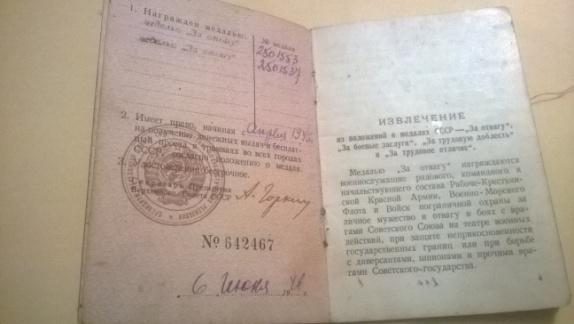 1. Награжден медалью:
медалью „За отвагу"
медалью „За отвагу"
№ медали
2501553
2501537
2. Имеет право, начиная с Апреля 194
на получение денежных выдач и бесплат-
ный проезд в трамваях во всех городах
СССР согласно положению о медали.
3. Удостоверение бессрочное.
Секретарь Президиума
СССР А. Горкин
№ 642467
6 Июня
ИЗВЛЕЧЕНИЕ
из положений о медалях СССР — „За отвагу",
„За боевые заслуги", „За трудовую доблесть"
и „За трудовое отличие"
Медалью „За отвагу" награждаются
военнослужащие рядового, командного и
начальствующего состава Рабоче-Крестьян-
ской Красной Армии, Военно-Морского
Флота и Войск пограничной охраны за
личное мужество и отвагу в боях с вра-
гами Советского Союза на театре военных
действий, при защите неприкосновенности
государственных границ или при борьбе
с диверсантами, шпионами и прочими вра-
гами Советского государства.